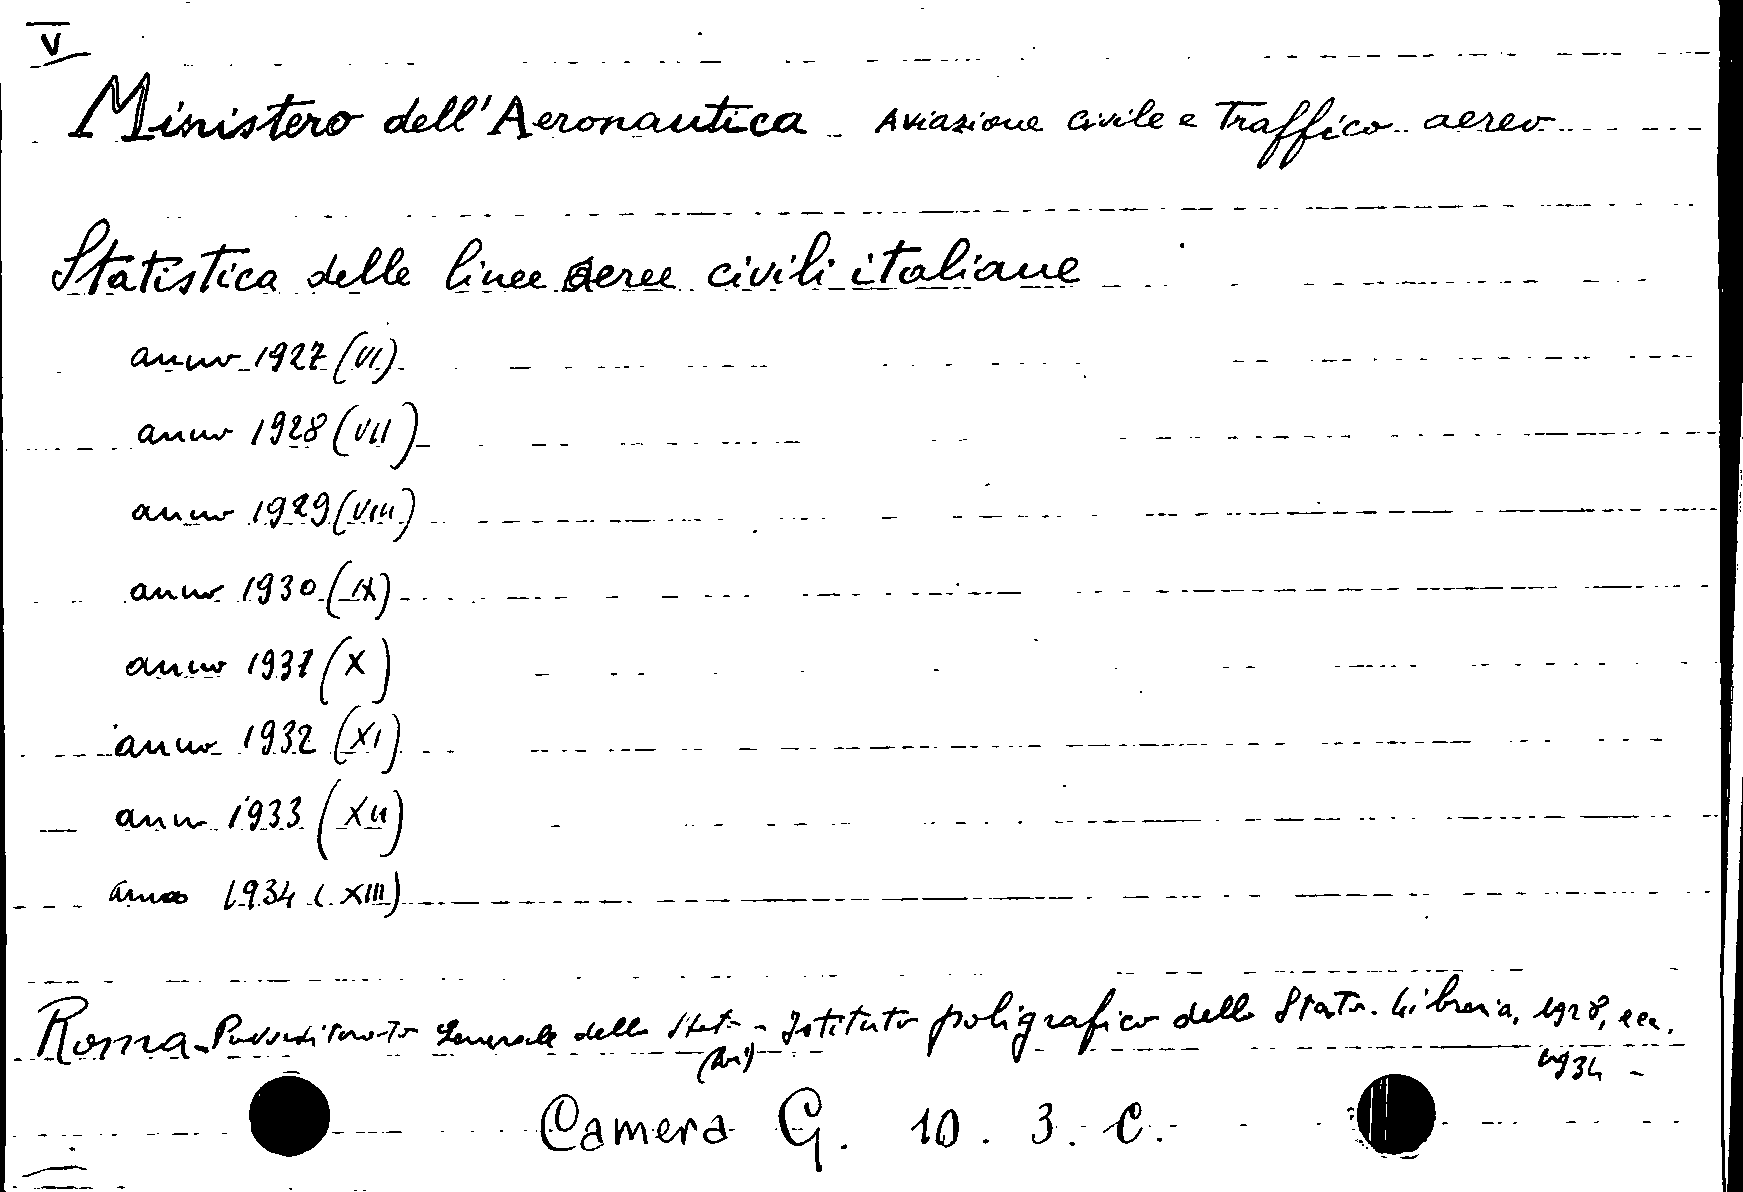 V
Ministero dell'Aeronautica - Aviazione civile e Traffico aereo
Statistica delle linee aeree civili italiane
anno 1927 (VI)
anno 1928 (VII)
anno 1929 (VIII)
anno 1930 (IX)
anno 1931 (X)
anno 1932 (XI)
anno 1933 (XII)
anno 1934 (XIII)
Roma - Provveditorato Generale dello Stato - Istituto poligrafico dello Stato. Libreria, 1928, ecc.
1934 -
Camera G. 10. 3. C.